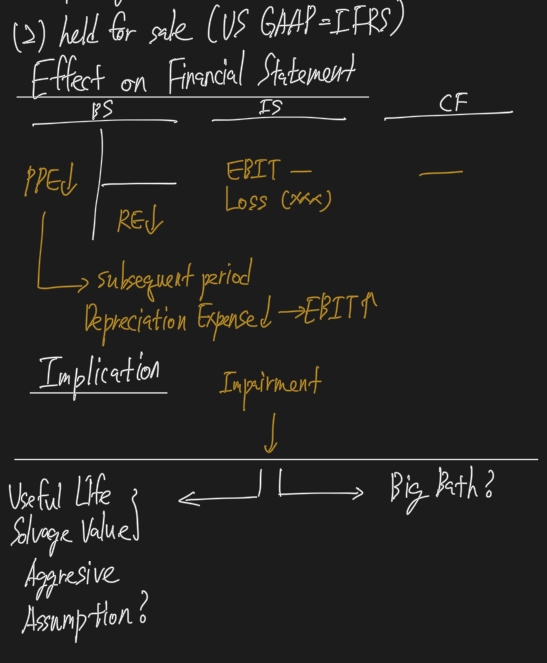 (2) held for sale (US GAAP = IFRS)
Effect on Financial Statement
BS IS CF
PPE↓ EBIT — —
Loss (xxx)
RE↓
→ subsequent period
Depreciation Expense↓ → EBIT↑
Implication
Impairment
↓
Useful Life } ← → Big Bath?
Salvage Value
Aggresive
Assumption?